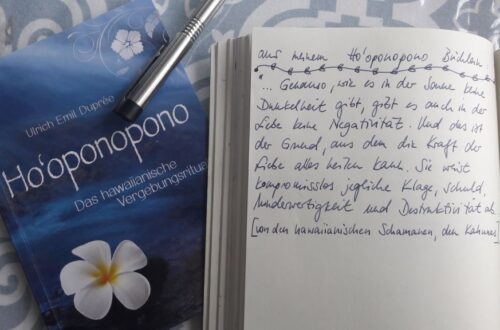 Ulrich Emil Duprée
Ho'oponopono
Das hawaiianische
Vergebungsritual
aus meinem Ho'oponopono Büchlein
"... Genauso, wie es in der Sonne keine
Dunkelheit gibt, gibt es auch in der
Liebe keine Negativität. Und das ist
der Grund, aus dem die Kraft der
Liebe alles heilen kann. Sie weist
kompromisslos jegliche Klage, Schuld,
Minderwertigkeit und Destruktivität ab
[von den hawaiianischen Schamanen, den Kahunas]